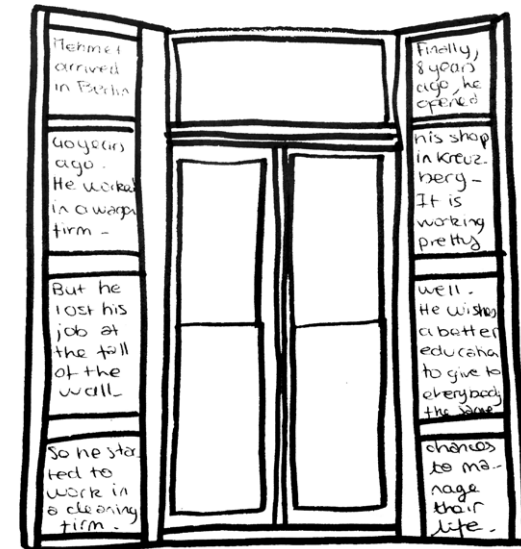 Mehmet
arrived
in Berlin
40 years
ago.
He worked
in a wagon
firm -
But he
lost his
job at
the fall
of the
wall -
So he star
ted to
work in
a cleaning
firm.
Finally,
8 years
ago, he
opened
his shop
in Kreuz-
berg -
It is
working
pretty
well.
He wishes
a better
education
to give to
everybody
the same
chances
to ma-
nage
their
life.